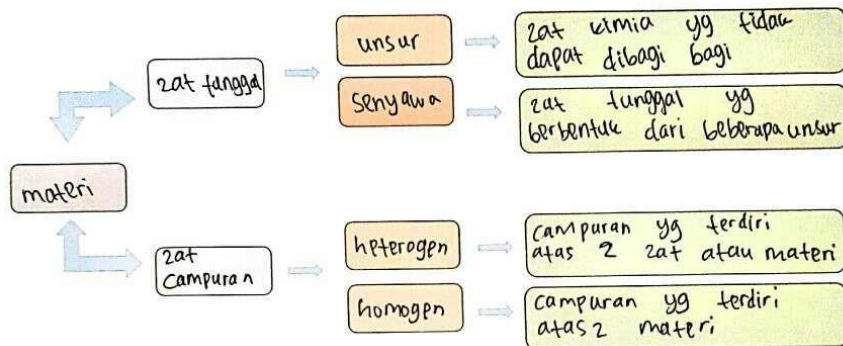 unsur
zat kimia yg tidak
dapat dibagi bagi
zat tunggal
senyawa
zat tunggal yg
berbentuk dari beberapa unsur
materi
zat
campuran
heterogen
campuran yg terdiri
atas 2 zat atau materi
homogen
campuran yg terdiri
atas 2 materi